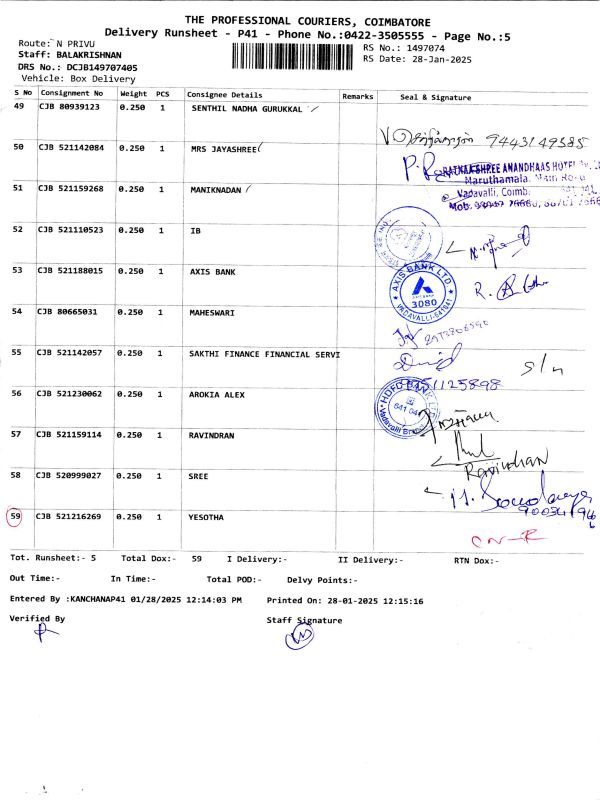 THE PROFESSIONAL COURIERS, COIMBATORE
Delivery Runsheet - P41 - Phone No.:0422-3505555 - Page No.:5
Route: N PRIVU
RS No.: 1497074
Staff: BALAKRISHNAN
RS Date: 28-Jan-2025
DRS No.: DCJB149707405
Vehicle: Box Delivery
S No Consignment No Weight PCS Consignee Details Remarks Seal & Signature
49 CJB 80939123 0.250 1 SENTHIL NADHA GURUKKAL
9443149585
50 CJB 521142084 0.250 1 MRS JAYASHREE
RATNAA SHREE ANANDHAAS HOTEL
Maruthamalai Main Road
51 CJB 521159268 0.250 1 MANIKNADAN
Vadavalli, Coimb.
Mob.
52 CJB 521110523 0.250 1 IB
53 CJB 521188015 0.250 1 AXIS BANK
AXIS BANK LTD
AXIS BANK
3080
VADAVALLI-641041
R.
54 CJB 80665031 0.250 1 MAHESWARI
55 CJB 521142057 0.250 1 SAKTHI FINANCE FINANCIAL SERVI
S/n
9751125898
56 CJB 521230062 0.250 1 AROKIA ALEX
HDFC BANK LTD
641 041
Vadavalli Branch
57 CJB 521159114 0.250 1 RAVINDRAN
Ravindran
58 CJB 520999027 0.250 1 SREE
59 CJB 521216269 0.250 1 YESOTHA
CN-R
Tot. Runsheet:- 5 Total Dox:- 59 I Delivery:- II Delivery:- RTN Dox:-
Out Time:- In Time:- Total POD:- Delvy Points:-
Entered By :KANCHANAP41 01/28/2025 12:14:03 PM Printed On: 28-01-2025 12:15:16
Verified By Staff Signature